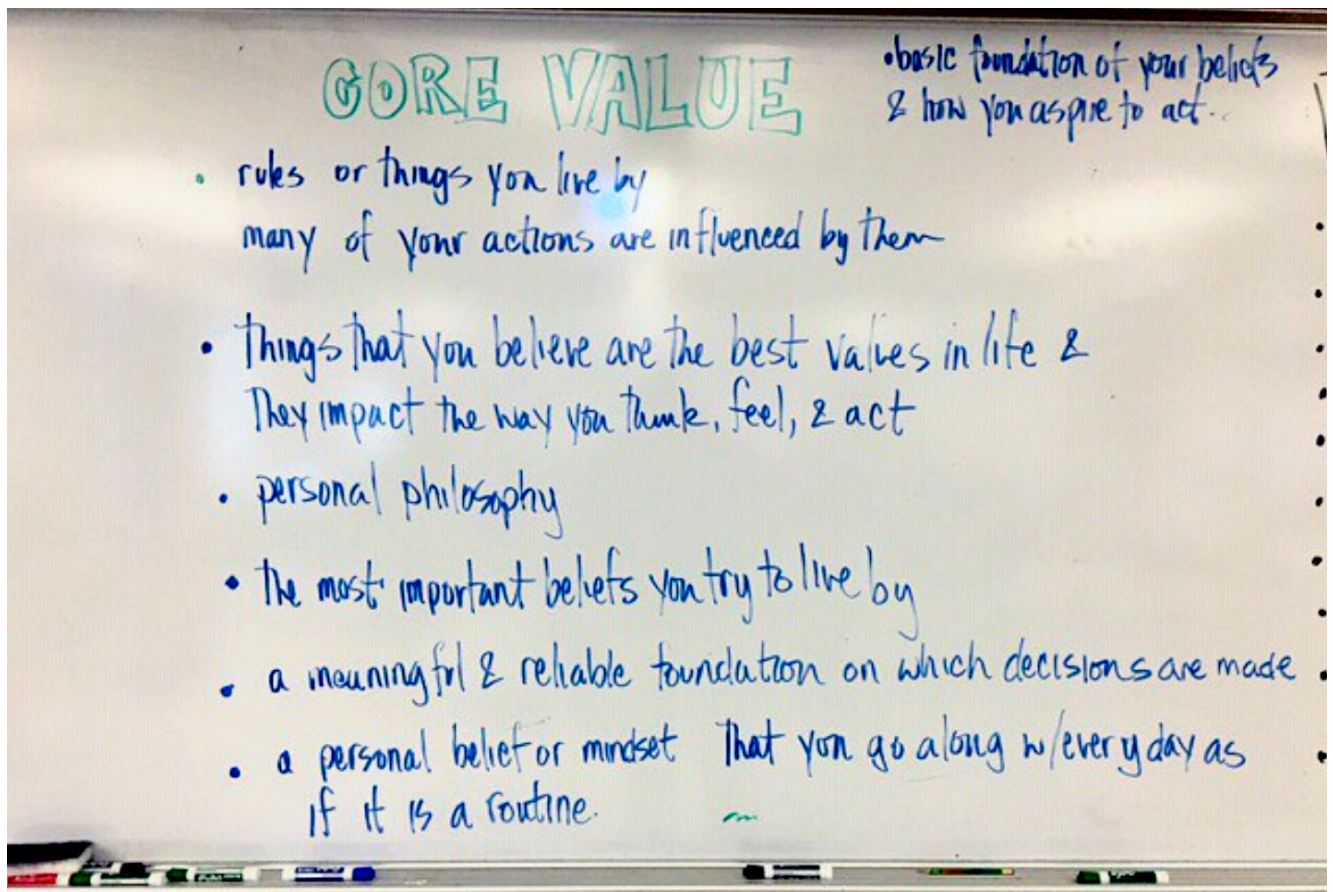 CORE VALUE
•basic foundation of your beliefs
& how you aspire to act..
• rules or things you live by
many of your actions are influenced by them
• Things that you believe are the best values in life &
They impact the way you think, feel, & act
• personal philosophy
• The most important beliefs you try to live by
• a meaningful & reliable foundation on which decisions are made
• a personal belief or mindset That you go along w/everyday as
if it is a routine.